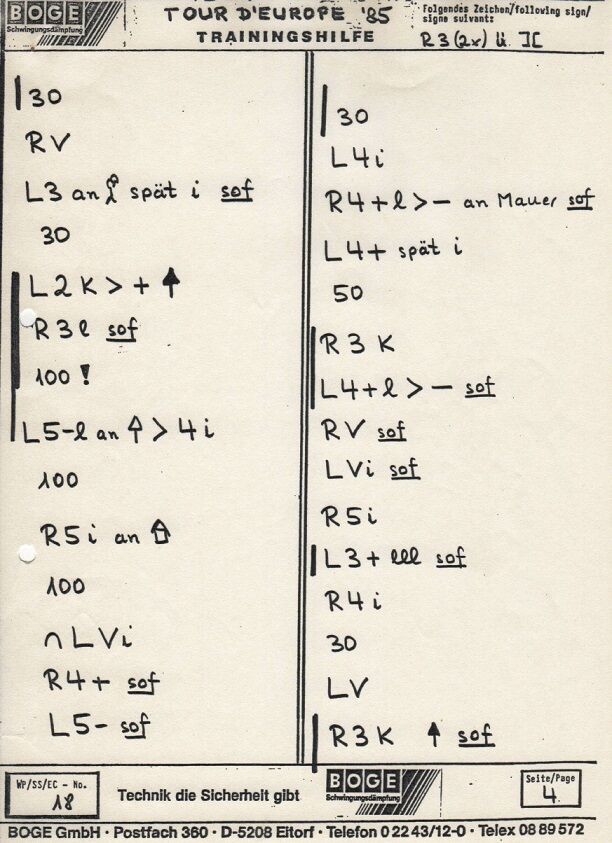 BOGE
Schwingungsdämpfung
TOUR D'EUROPE '85
TRAININGSHILFE
Folgendes Zeichen/following sign/
signe suivant:
R3(2x) ü. IC
30
RV
L3 an spät i sof
30
L2K>+ ↑
R3l sof
100!
L5-l an ↑ > 4i
100
R5i an
100
∩LVi
R4+ sof
L5- sof
30
L4i
R4+l>- an Mauer sof
L4+ spät i
50
R3K
L4+l>- sof
RV sof
LVi sof
R5i
L3+ lll sof
R4i
30
LV
R3K ↑ sof
WP/SS/EC - No.
18
Technik die Sicherheit gibt
BOGE
Schwingungsdämpfung
Seite/Page
4
BOGE GmbH · Postfach 360 · D-5208 Eitorf · Telefon 0 22 43/12-0 · Telex 08 89 572